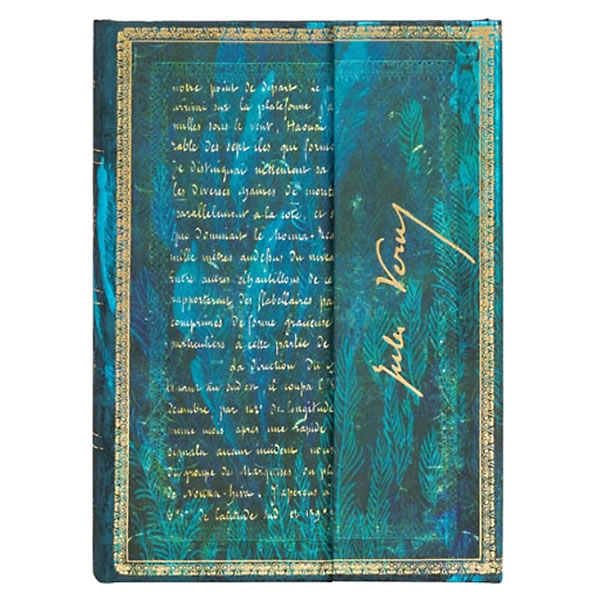 notre point de départ. Le m
arrivai sur la plateforme, j'a
milles sous le vent, Haouaï
rable des sept iles qui forme
Je distinguai nettement sa
les diverses chaînes de mont
parallèlement à la côte, et s
que dominait le Mouna-Rea
mille mètres audessus du nivea
Entre autres échantillons de ce
rapportèrent des flabellaires pa
comprimés de forme gracieuse
particuliers à cette partie de
La direction du
au sud est il coupa l'E
décembre, par 142° de longitude
même mois après une rapide
signala aucun incident nous
du groupe des Marquises. J'
de Nouka-hiva. J'aperçus à
de latitude sud et 139°
Jules Verne